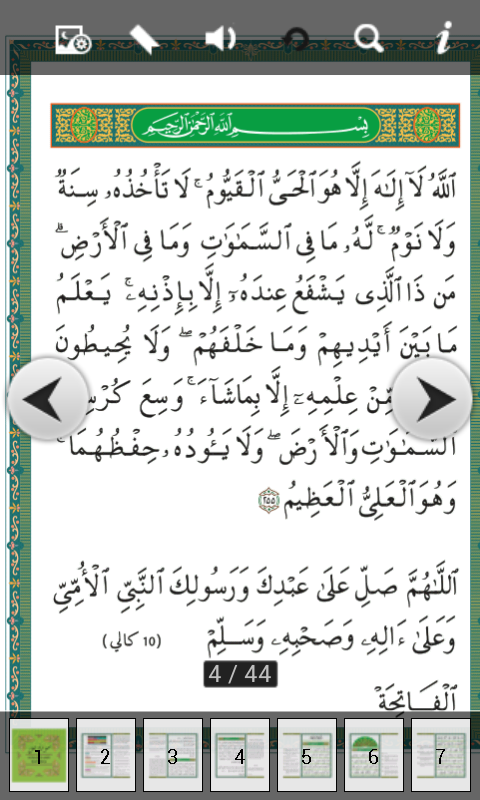 بِسْمِ اللَّهِ الرَّحْمَٰنِ الرَّحِيمِ
اللَّهُ لَآ إِلَٰهَ إِلَّا هُوَ الْحَىُّ الْقَيُّومُ ۚ لَا تَأْخُذُهُۥ سِنَةٌ
وَلَا نَوْمٌ ۚ لَّهُۥ مَا فِى السَّمَٰوَٰتِ وَمَا فِى الْأَرْضِ ۗ
مَن ذَا الَّذِى يَشْفَعُ عِندَهُۥٓ إِلَّا بِإِذْنِهِۦ ۚ يَعْلَمُ
مَا بَيْنَ أَيْدِيهِمْ وَمَا خَلْفَهُمْ ۖ وَلَا يُحِيطُونَ
مِّنْ عِلْمِهِۦٓ إِلَّا بِمَا شَآءَ ۚ وَسِعَ كُرْسِ
السَّمَٰوَٰتِ وَالْأَرْضَ ۖ وَلَا يَـُٔودُهُۥ حِفْظُهُمَا ۚ
وَهُوَ الْعَلِىُّ الْعَظِيمُ ٢٥٥
اللَّهُمَّ صَلِّ عَلَىٰ عَبْدِكَ وَرَسُولِكَ النَّبِىِّ الْأُمِّىِّ
وَعَلَىٰ ءَالِهِۦ وَصَحْبِهِۦ وَسَلِّمْ (10 كالي)
4 / 44
الْفَاتِحَةْ
1 2 3 4 5 6 7